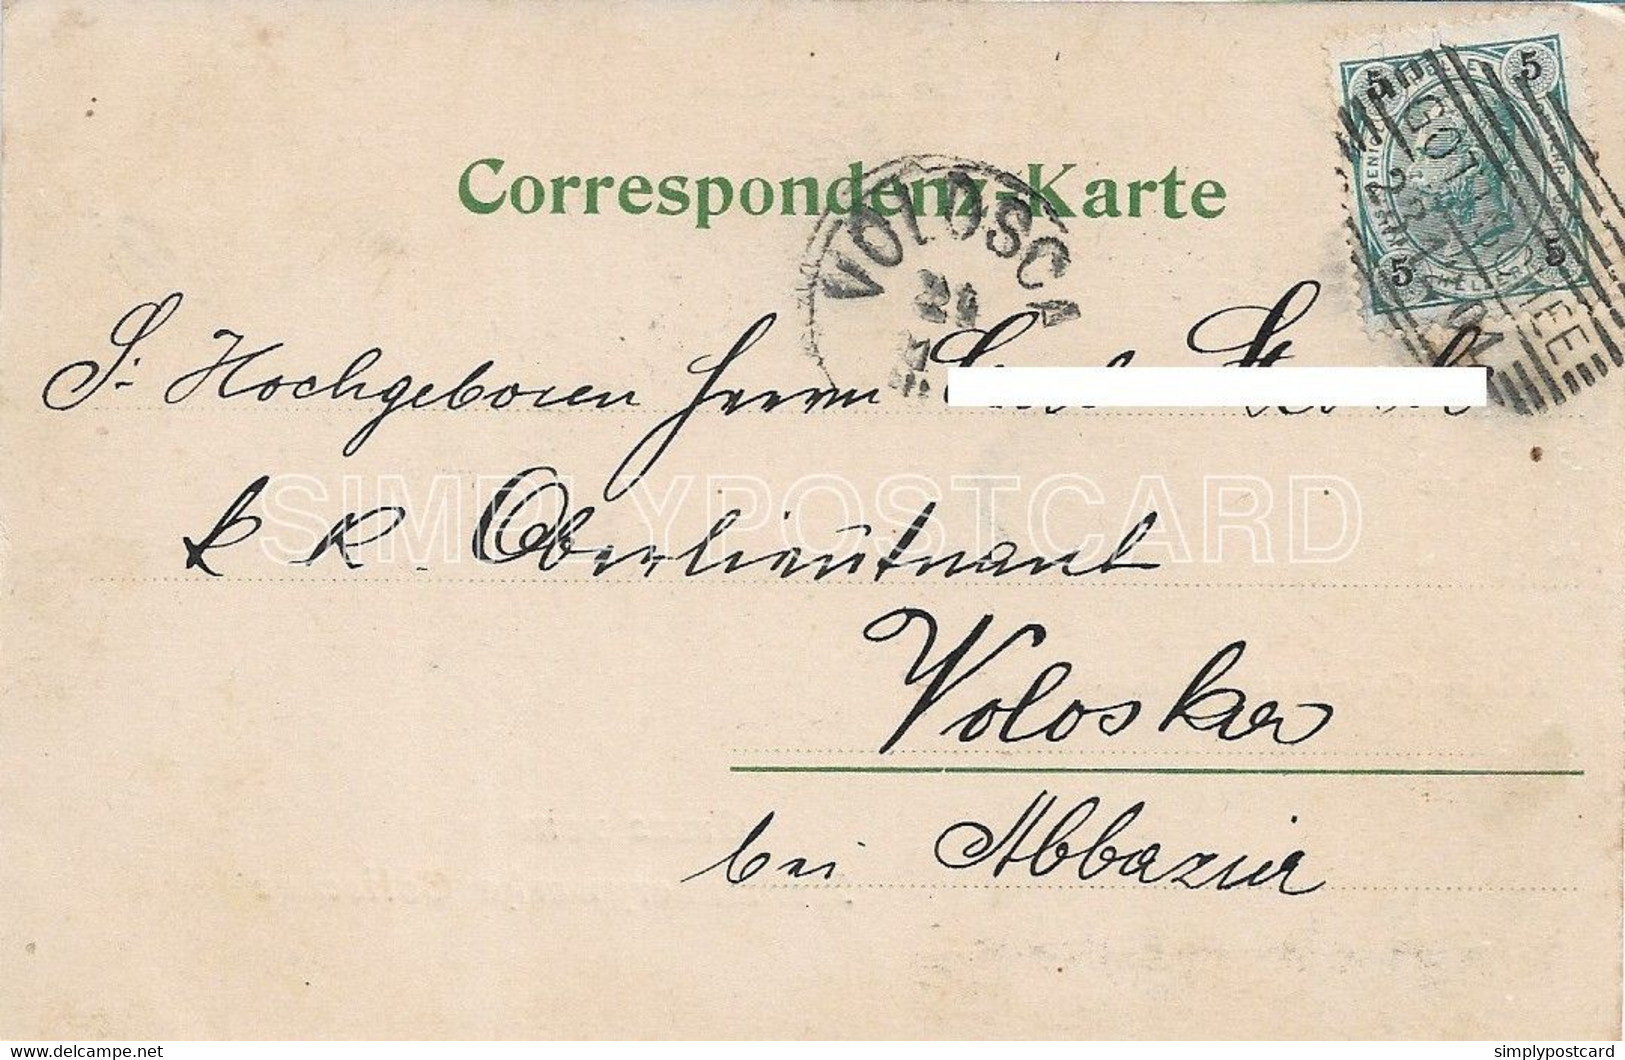 Correspondenz-Karte
VOLOSCA
5 5
5 5
S: Hochgeboren Herrn
k k. Oberlieutnant
Voloska
bei Abbazia
SIMPLYPOSTCARD
delcampe.net
simplypostcard